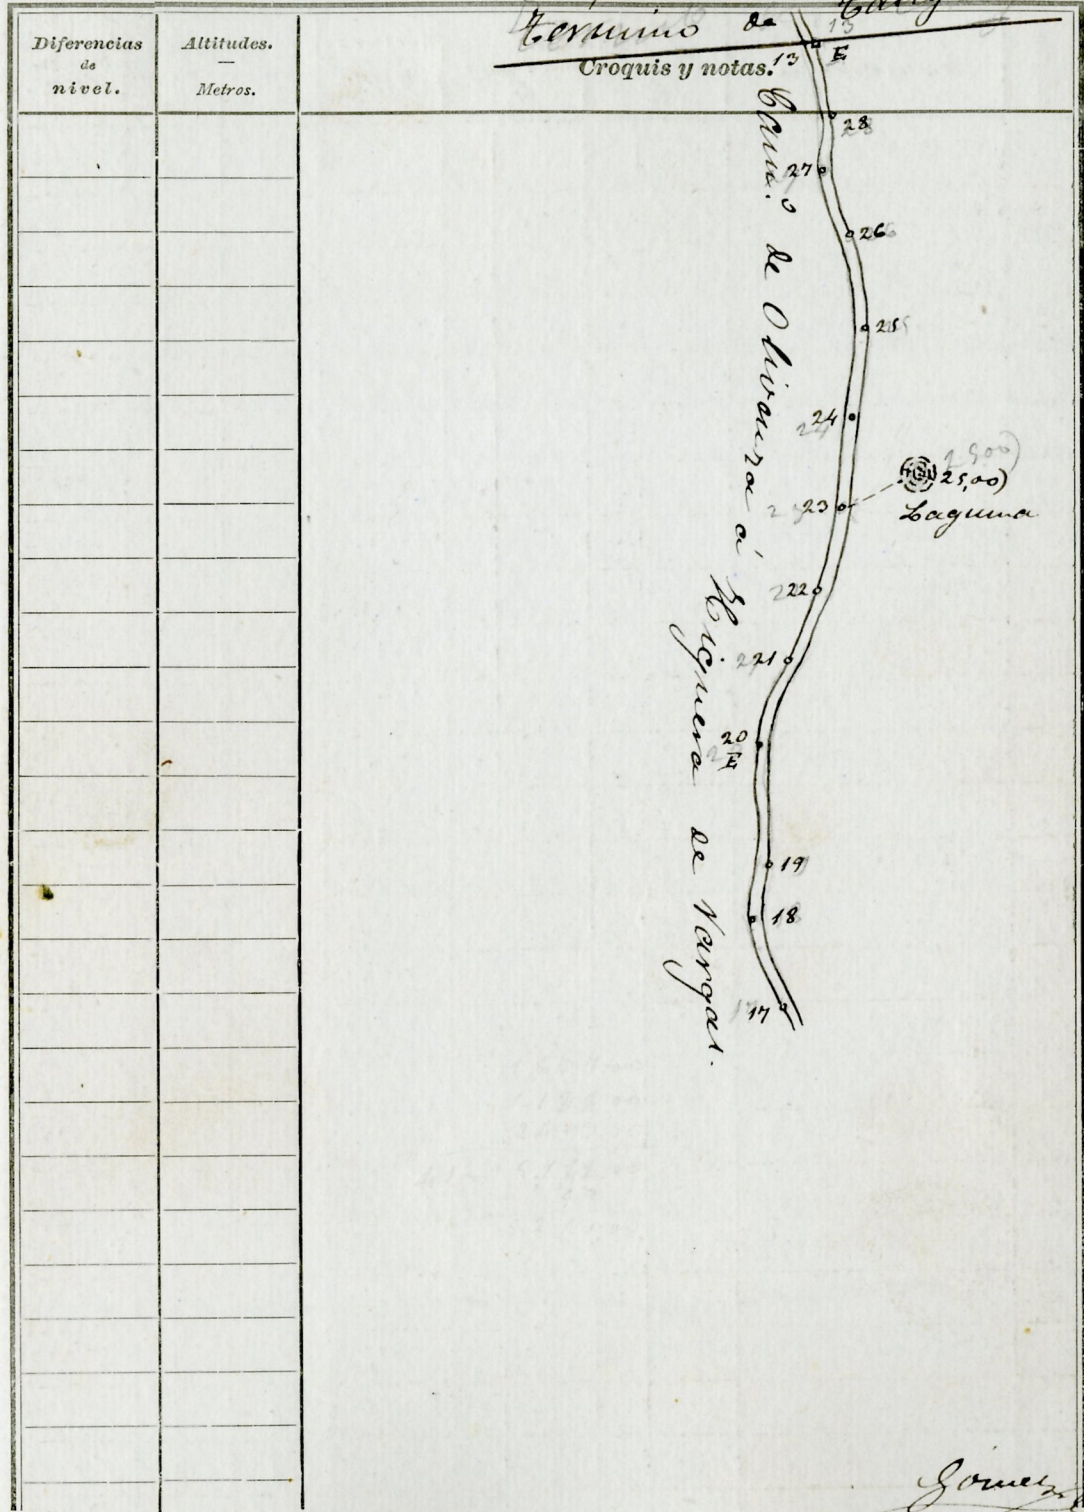 Término de
Diferencias
de
nivel.
Altitudes.
Metros.
Croquis y notas.
13
13
E
28
27
26
25
24
23
25,00)
Laguna
22
21
20
E
19
18
17
Cam.º de Olivenza á Higuera de Vargas.
Gómez